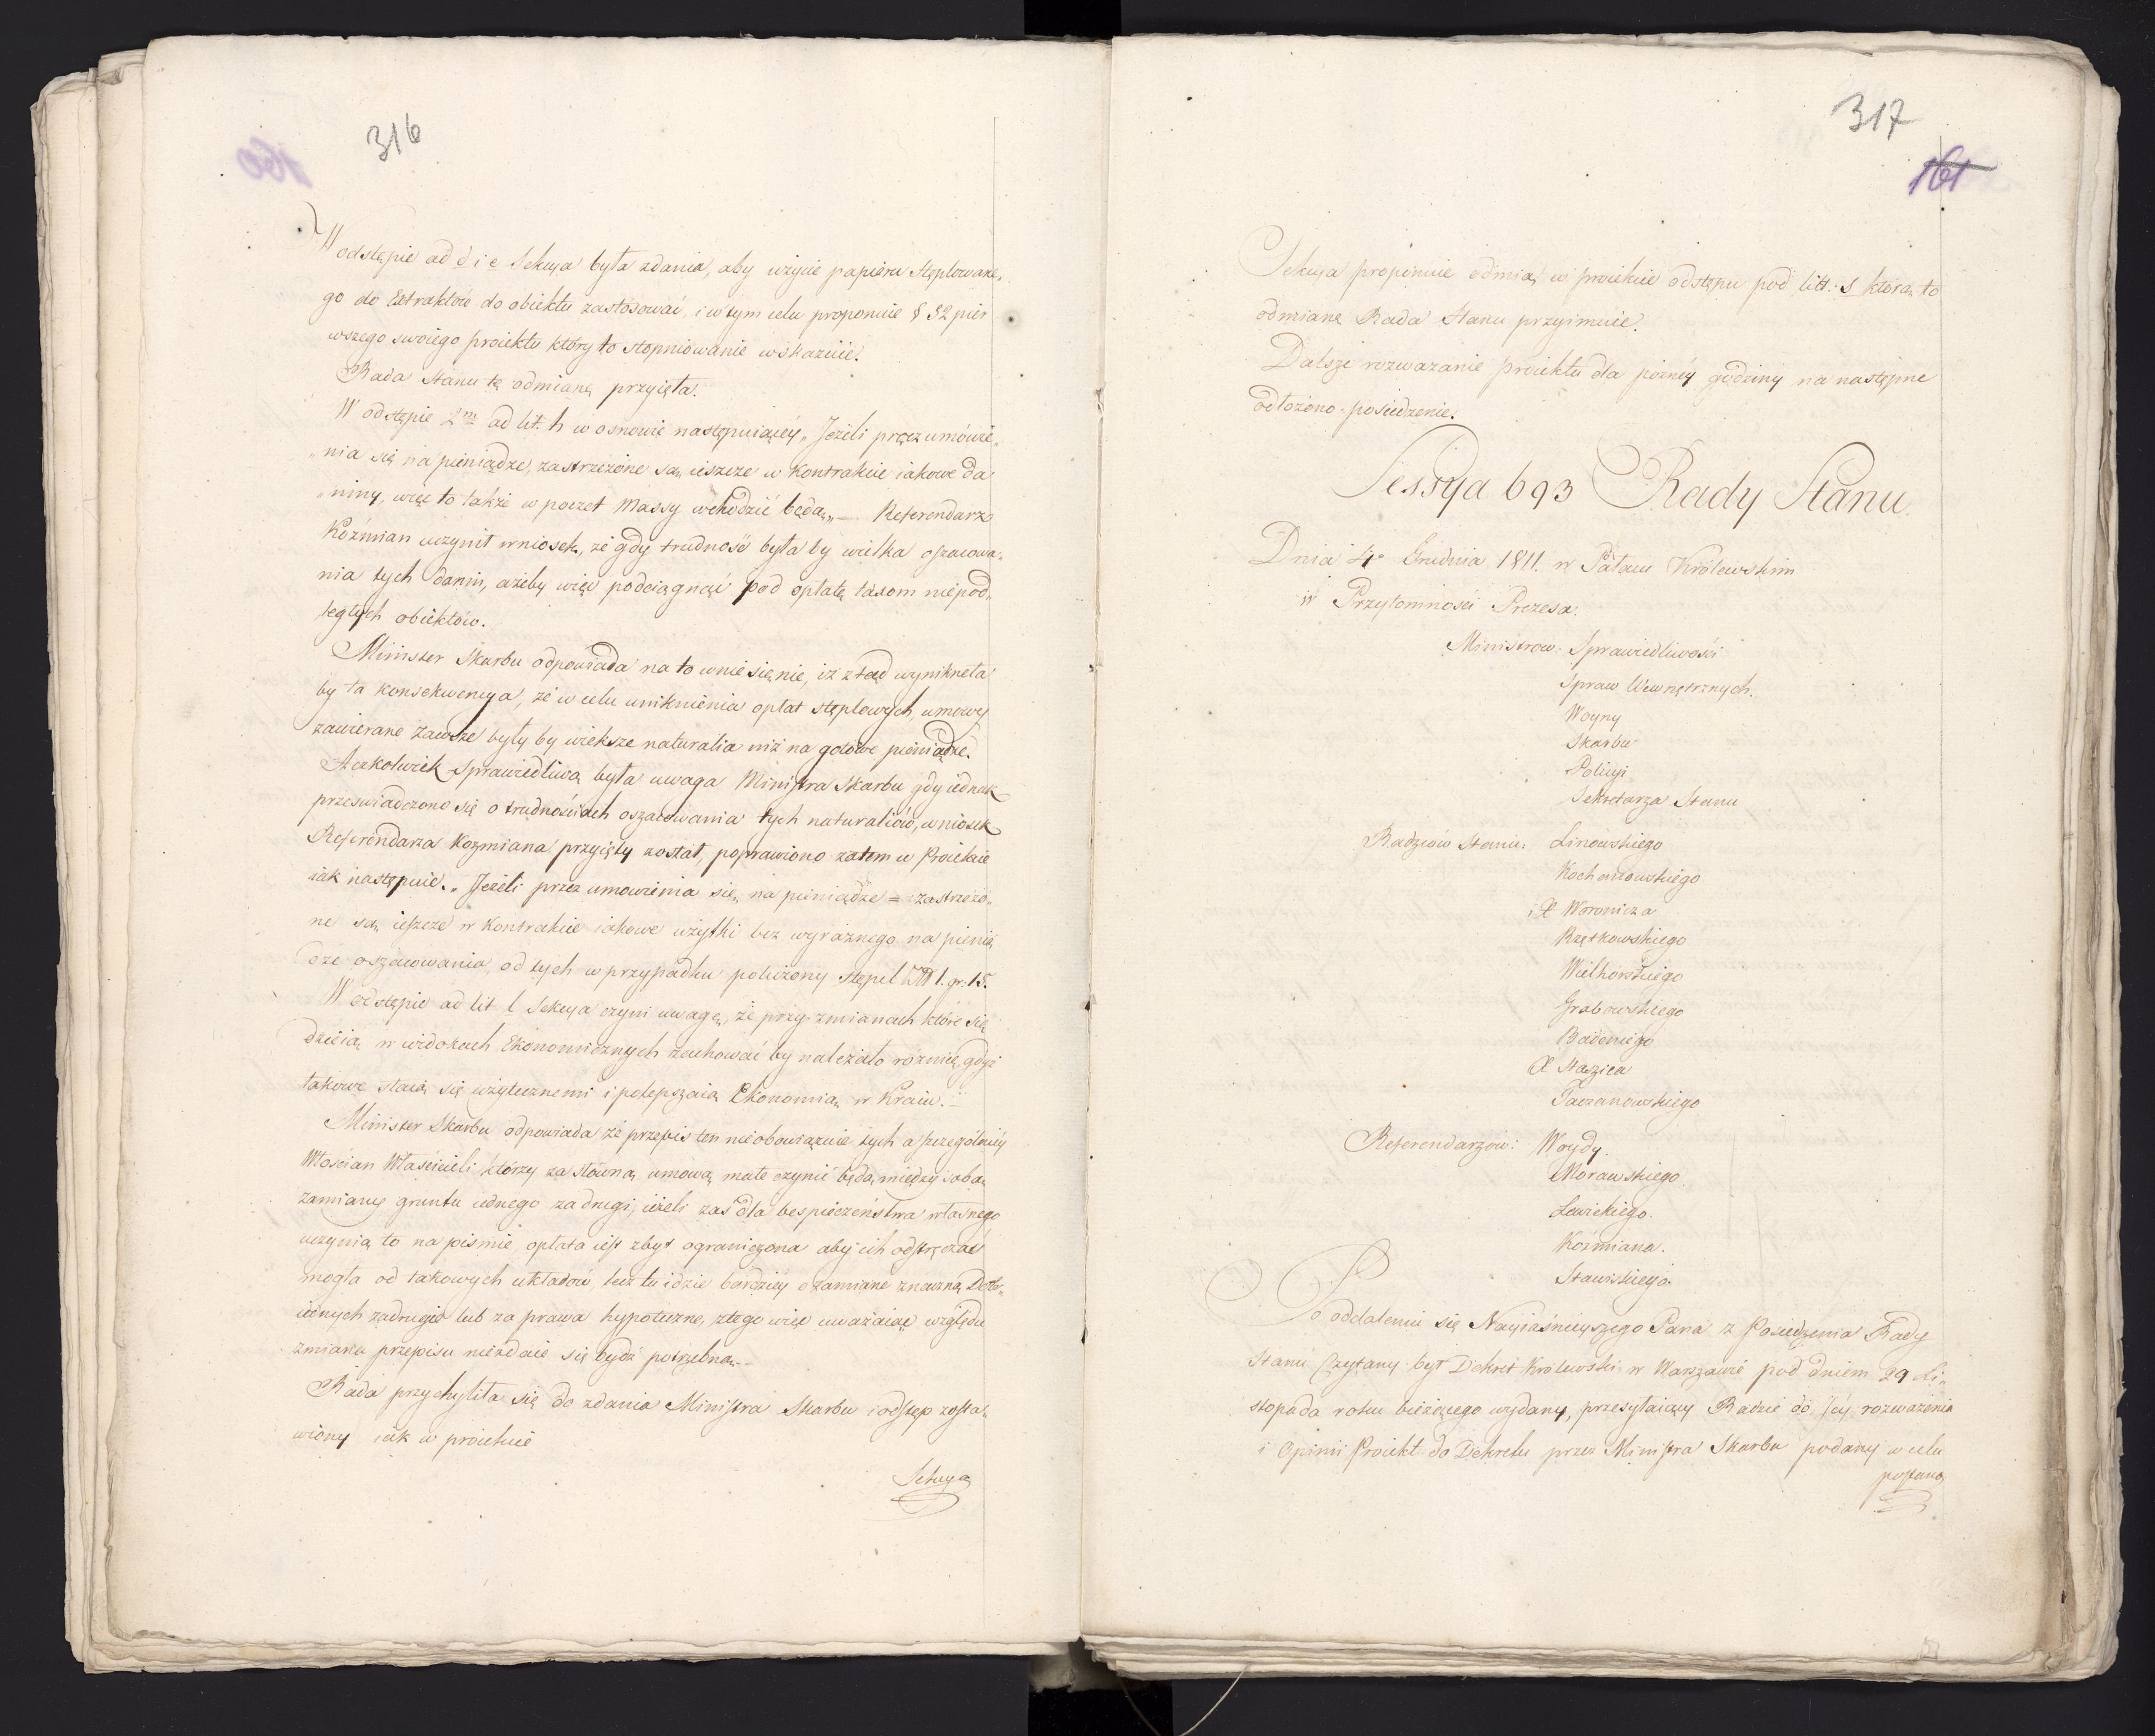 316
W odstępie ad d i e Sekcya była zdania, aby użycie papieru stęplowane„
go do Extraktów do obiektu zastosować, i w tym celu proponuie § 52 pier
wszego swoiego proiektu który to stopniowanie wskazuie.
Rada Stanu tę odmianę przyięła.
W odstępie 2m ad lit. h w osnowie następuiącey „Jeżeli prócz umówie„
„nia się na pieniądze, zastrzeżone są ieszcze w Kontrakcie iakowe da
„niny, więc to także w poczet Massy wchodzić będą„— Referendarz
Koźmian uczynił wniosek, że gdy trudność była by wielka oszacowa„
nia tych danin, ażeby więc podciągnąć pod opłatę taxom niepod„
ległych obiektów.
Minister Skarbu odpowiada na to wniesienie, iż ztąd wyniknęła
by ta konsekwencya, że w celu uniknienia opłat stęplowych, umowy
zawierane zawsze były by większe naturalia niż na gotowe pieniądze.
Aczkolwiek sprawiedliwą była uwaga Ministra Skarbu gdy iednak
przeswiadczono się o trudnościach oszacowania tych naturaliów, wniosek
Referendarza Kozmiana przyięty został, poprawiono zatem w Proiekcie
iak następuie. „Jeżeli przez umowienia się na pieniądze = zastrzeżo„
ne są ieszcze w Kontrakcie iakowe użytki bez wyraznego na pienią
dze oszacowania, od tych w przypadku policzony stępel Złł 1. gr. 15.
W odstępie ad lit l Sekcya czyni uwagę, że przy zmianach które się
dzieią w widokach Ekonomicznych zachować by należało różnicę, gdyż
takowe staią się użytecznemi i polepszaią Ekonomią w Kraiu.—
Minister Skarbu odpowiada że przepis ten nieobowiązuie tych a szczególniey
Włoscian Właścicieli którzy za słowną umową małe czynić będą między sobą
zamiany gruntu iednego za drugi, ieżeli zaś dla bespieczeństwa własnego
uczynią to na pismie, opłata iest zbyt ograniczona aby ich odstręczać
mogła od takowych układów, lecz tu idzie bardziey o zamianę znaczną Dobr
iednych za drugie lub za prawa hypoteczne, z tego więc uważaiąc względu
zmiana przepisu niezdaie się bydź potrzebna.—
Rada przychyliła się do zdania Ministra Skarbu i odstęp zosta„
wiony iak w proiekcie
Sekcya
317
161
Sekcya proponuie odmianę w proiekcie odstępu pod litt: s którą to
odmianę Rada Stanu przyimuie.
Dalsze rozwazanie proiektu dla pózney godziny na następne
odłożono posiedzenie.
Sessya 693 Rady Stanu
Dnia 4o Grudnia 1811. w Pałacu Królewskim
w Przytomności Prezesa.
Ministrow: Sprawiedliwości
Spraw Wewnętrznych.
Woyny
Skarbu
Policyi
Sekretarza Stanu
Radzców Stanu: Linowskiego
Kochanowskiego
X Woronicza
Rzętkowskiego
Wielhorskiego
Grabowskiego
Badeniego
X Staszica
Taczanowskiego
Referendarzow: Woydy.
Morawskiego.
Lewickiego.
Koźmiana.
Stawiskiego.
Po oddaleniu się Nayiaśnieyszego Pana z Posiedzenia Rady
Stanu Czytany był Dekret Królewski w Warszawie pod dniem 29 Li„
stopada roku bieżącego wydany, przesyłaiący Radzie do Jey rozważenia
i Opinii Proiekt do Dekretu przez Ministra Skarbu podany w celu
postano